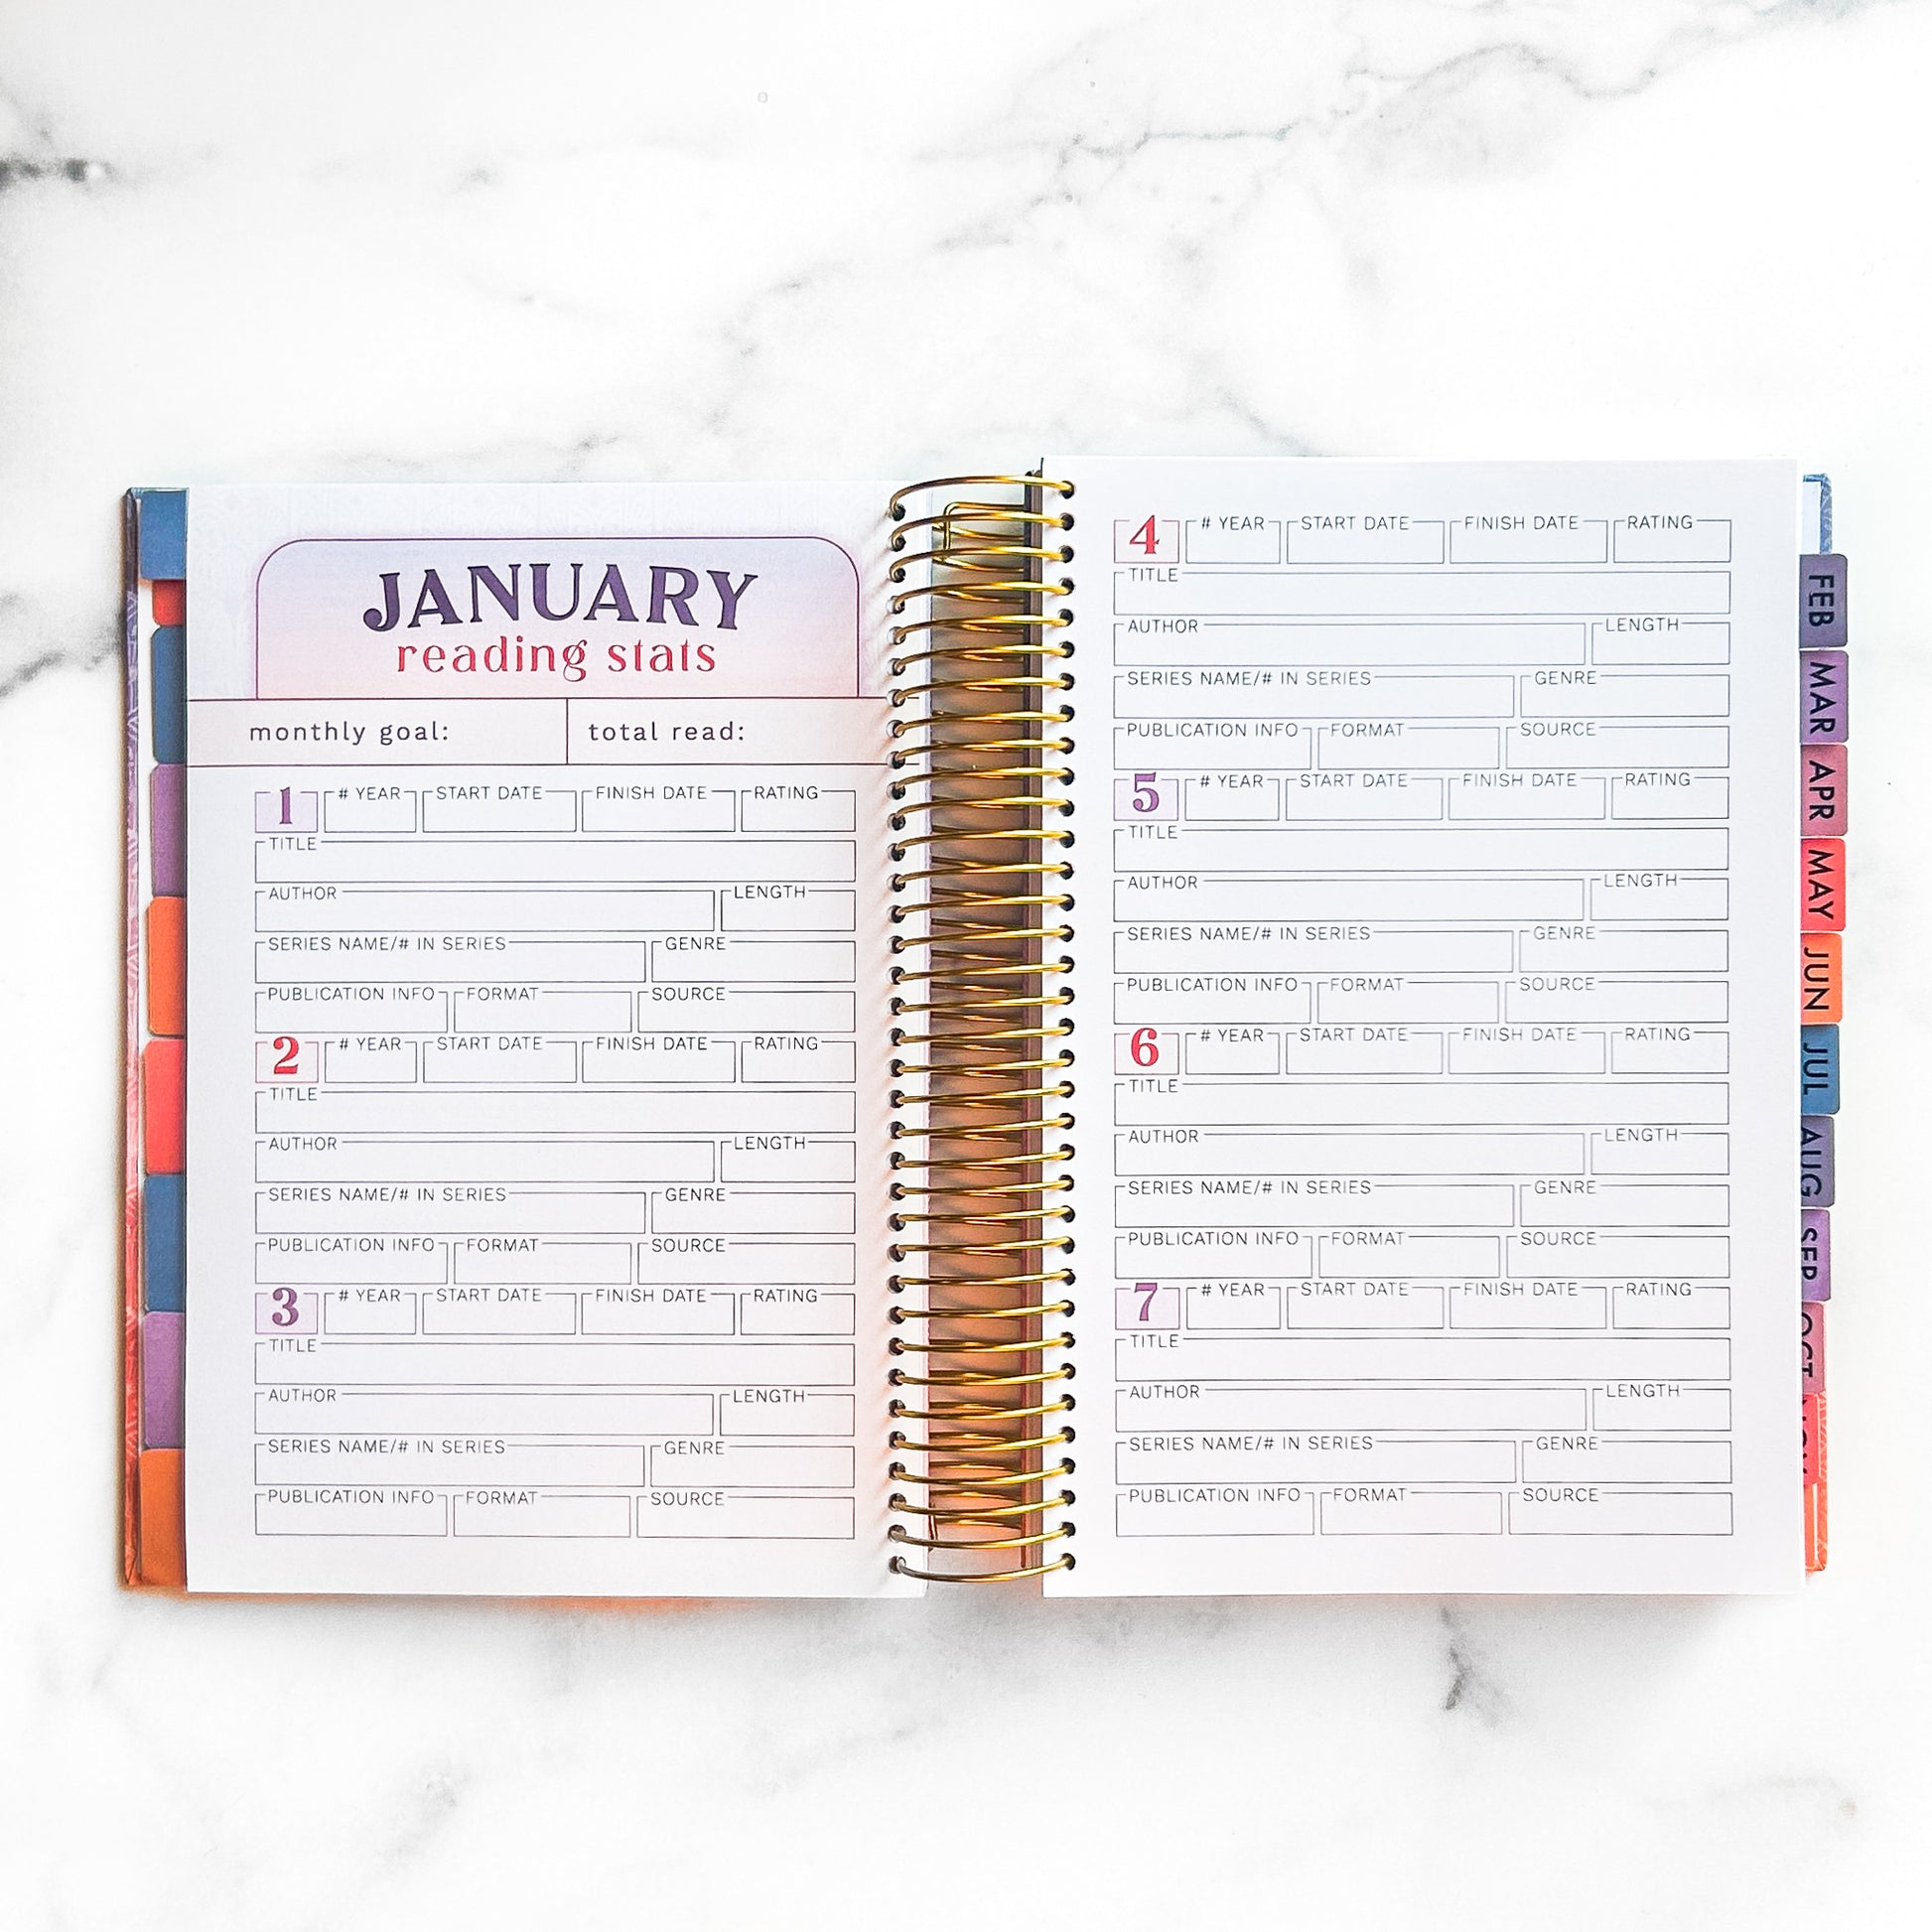 JANUARY
reading stats
monthly goal: total read:
1 # YEAR START DATE FINISH DATE RATING
TITLE
AUTHOR LENGTH
SERIES NAME/# IN SERIES GENRE
PUBLICATION INFO FORMAT SOURCE
2 # YEAR START DATE FINISH DATE RATING
TITLE
AUTHOR LENGTH
SERIES NAME/# IN SERIES GENRE
PUBLICATION INFO FORMAT SOURCE
3 # YEAR START DATE FINISH DATE RATING
TITLE
AUTHOR LENGTH
SERIES NAME/# IN SERIES GENRE
PUBLICATION INFO FORMAT SOURCE
4 # YEAR START DATE FINISH DATE RATING
TITLE
AUTHOR LENGTH
SERIES NAME/# IN SERIES GENRE
PUBLICATION INFO FORMAT SOURCE
5 # YEAR START DATE FINISH DATE RATING
TITLE
AUTHOR LENGTH
SERIES NAME/# IN SERIES GENRE
PUBLICATION INFO FORMAT SOURCE
6 # YEAR START DATE FINISH DATE RATING
TITLE
AUTHOR LENGTH
SERIES NAME/# IN SERIES GENRE
PUBLICATION INFO FORMAT SOURCE
7 # YEAR START DATE FINISH DATE RATING
TITLE
AUTHOR LENGTH
SERIES NAME/# IN SERIES GENRE
PUBLICATION INFO FORMAT SOURCE
FEB
MAR
APR
MAY
JUN
JUL
AUG
SEP
OCT